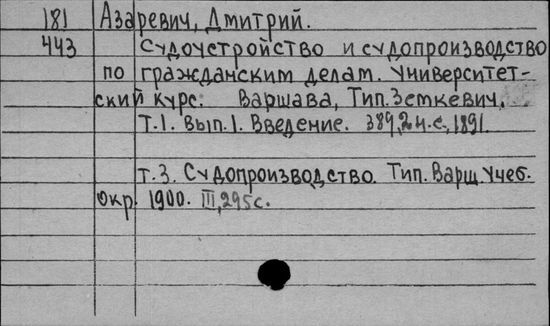 181 Азаревич, Дмитрий.
443 Судоустройство и судопроизводство
по гражданским делам. Университет-
ский курс: Варшава, Тип. Земкевич,
Т.1. Вып.1. Введение. 389,2 н.с., 1891.
т.3. Судопроизводство. Тип. Варш. Учеб.
Окр. 1900. III, 295 с.